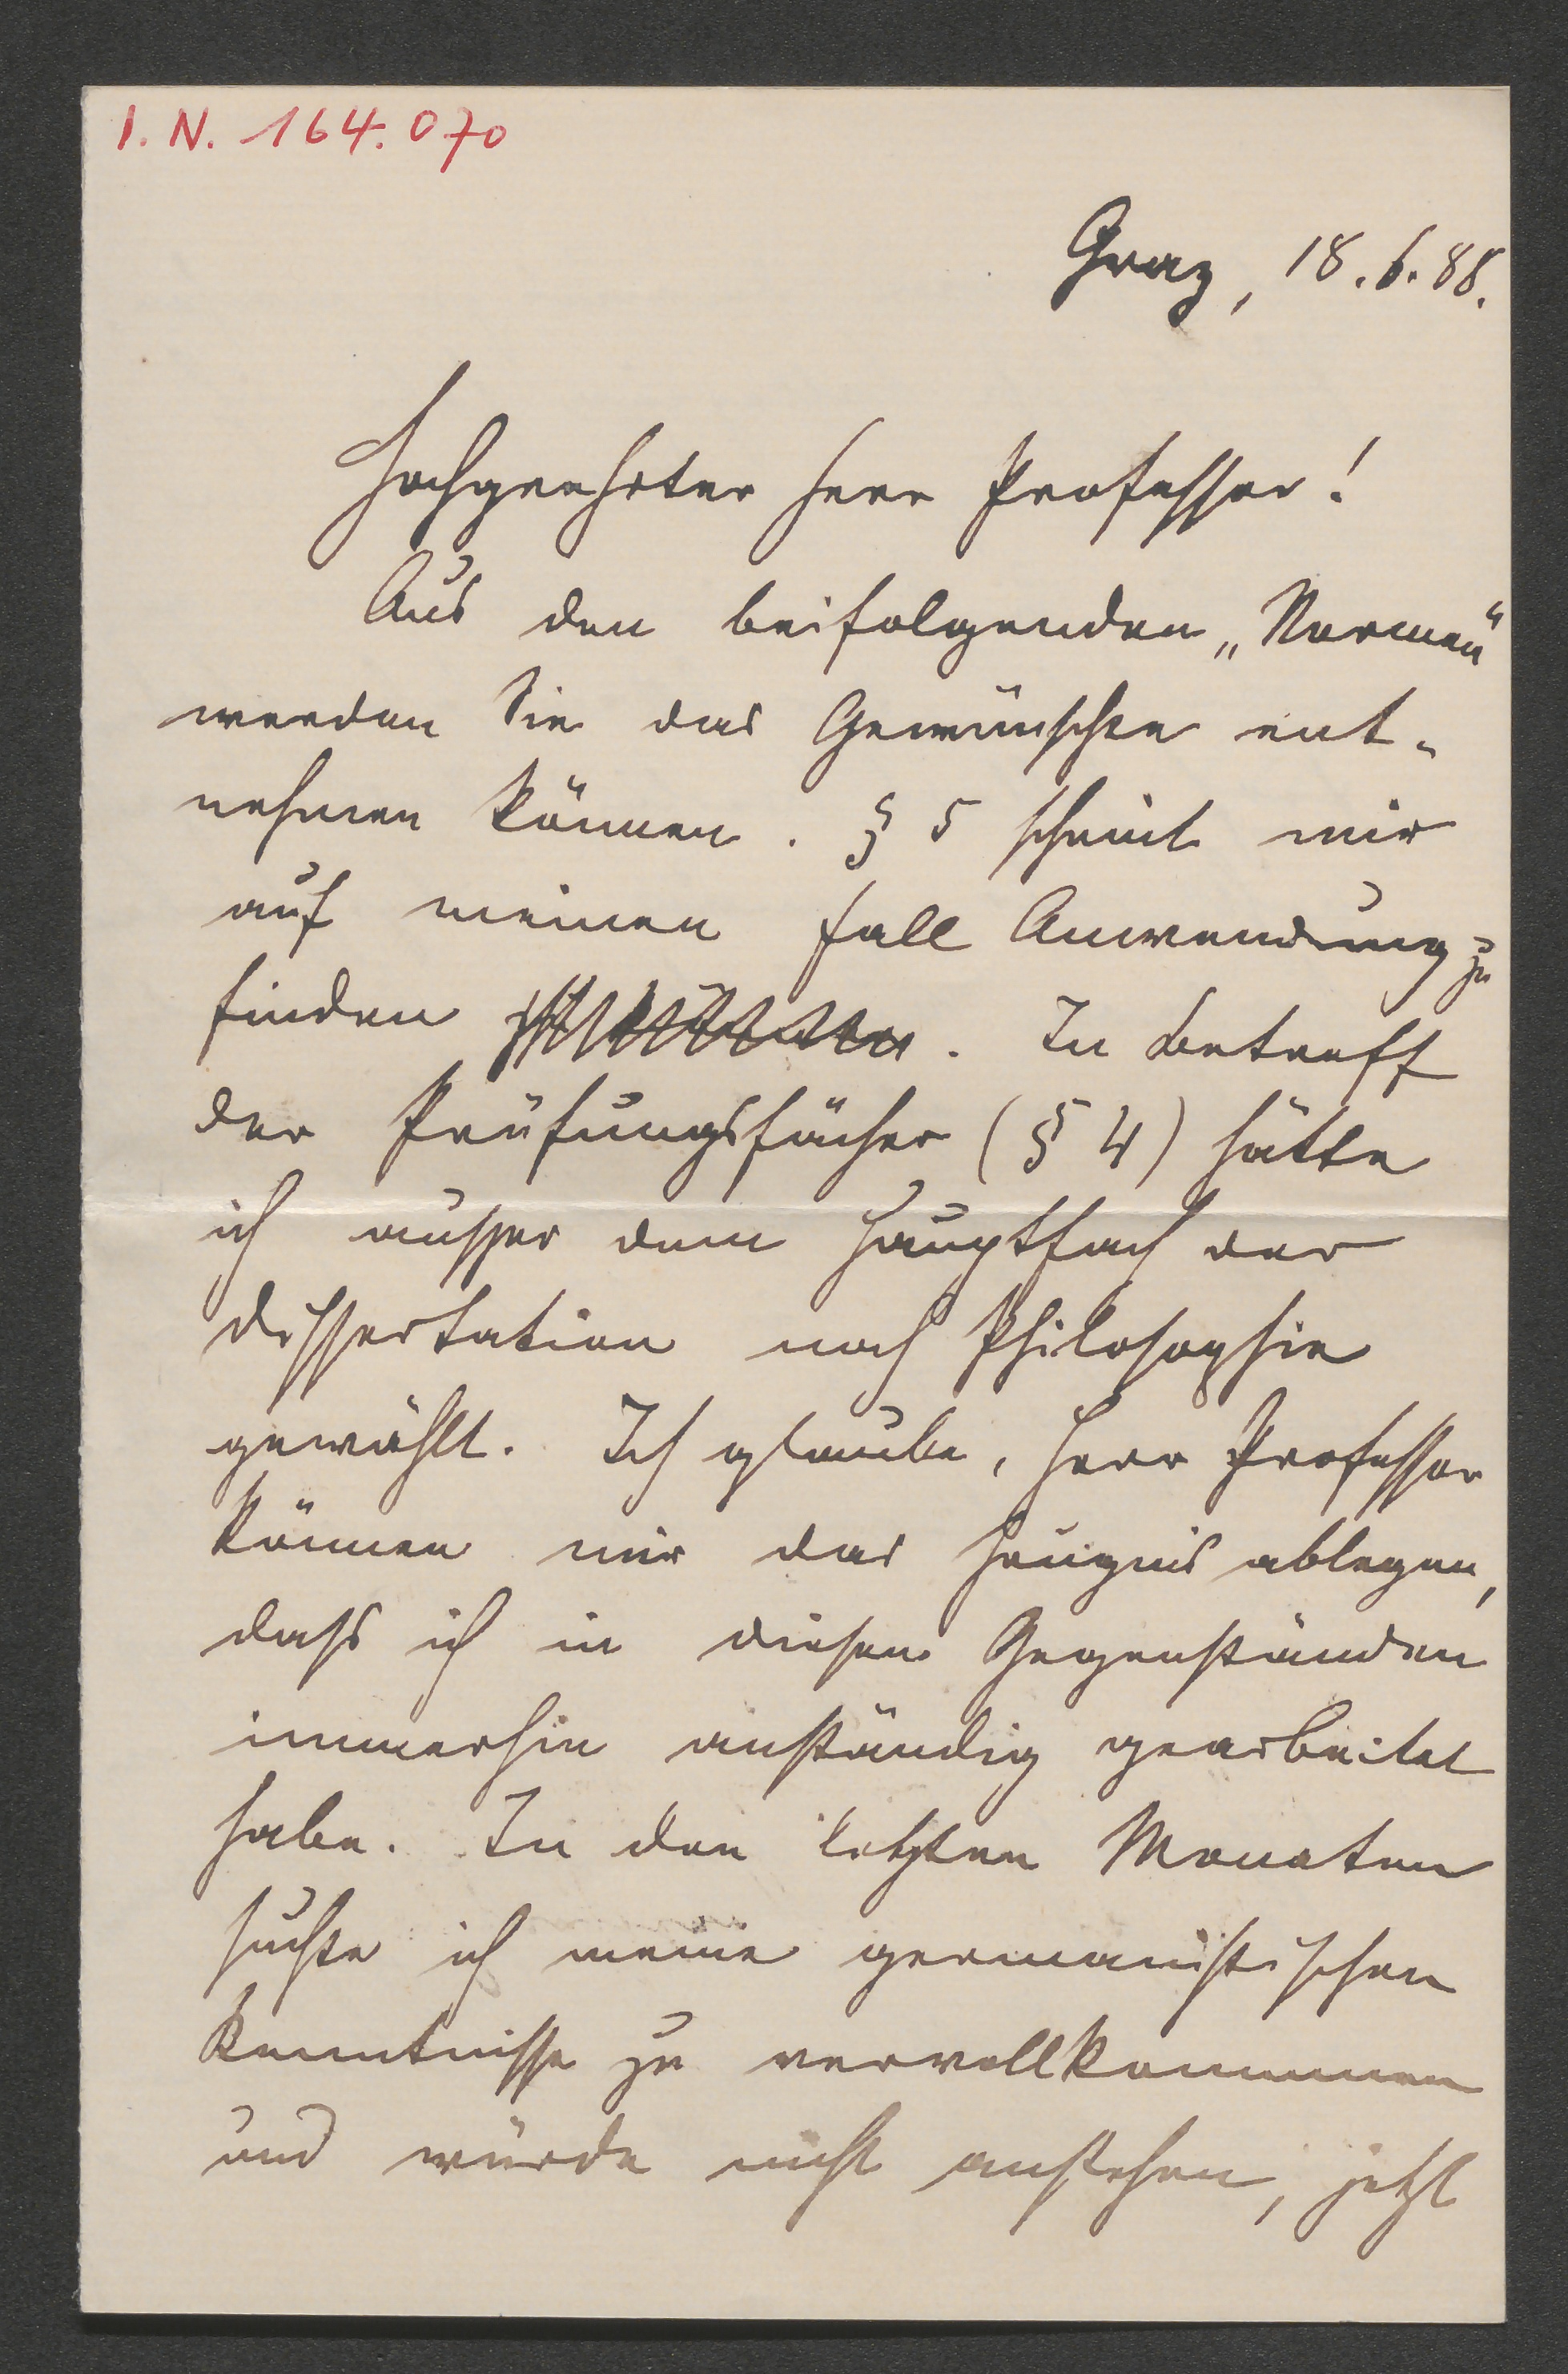 I. N. 164.070
Graz, 18.6.88.
Hochgeehrter Herr Professor!
Aus den beifolgenden „Normen“
werden Sie das Gewünschte ent-
nehmen können. § 5 scheint mir
auf meinen Fall Anwendung zu
finden. In Betreff
der Prüfungsfächer (§ 4) hätte
ich ausser dem Hauptfach der
Dissertation noch Philosophie
gewählt. Ich glaube, Herr Professor
können mir das Zeugnis ablegen,
dass ich in diesen Gegenständen
immerhin anständig gearbeitet
habe. In den letzten Monaten
suchte ich meine germanistischen
Kenntnisse zu vervollkommnen
und würde nicht anstehen, jetzt